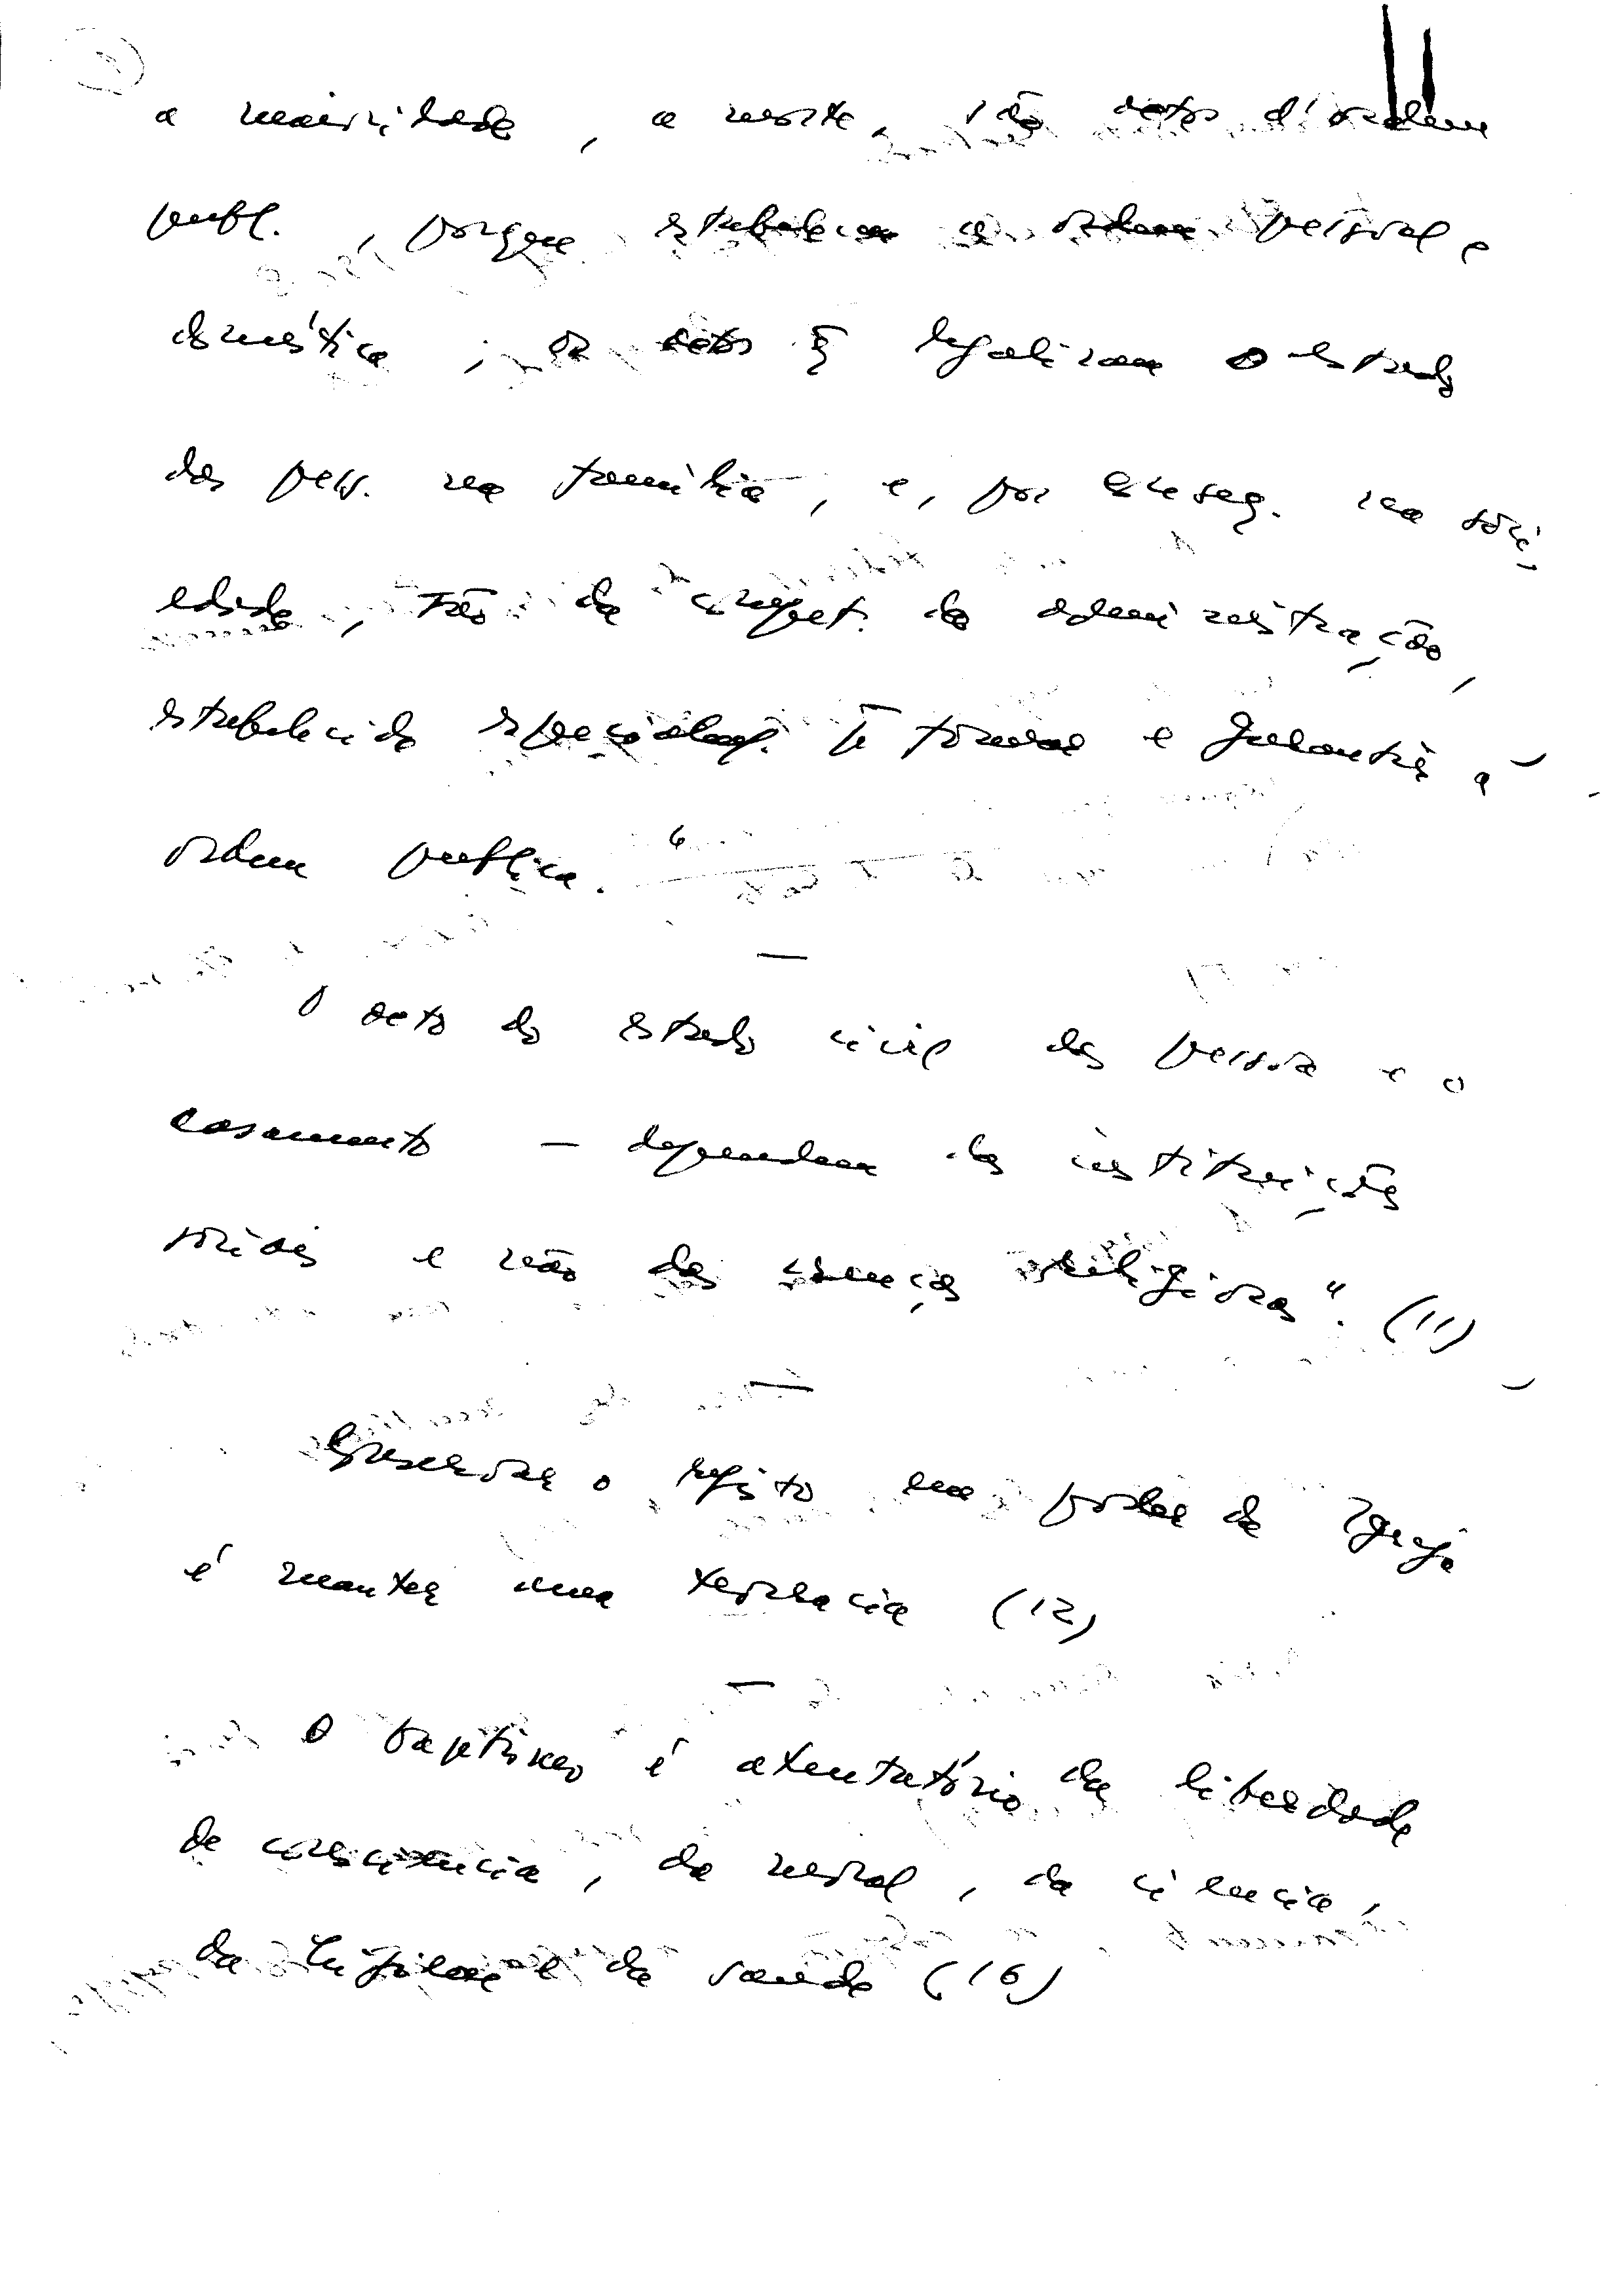 a maioridade, a morte, são actos d'ordem
publ., porque estabelecem a ordem pessoal e
doméstica; os actos q̃ legalizam o estado
das pess. na família, e, por conseq. na soci-
edade, são da compet. da administração,
estabelecida especialmt. pª formar e garantir a
ordem publica. 6
—
O acto do estado civil da pessoa e o
casamento — dependem das instituições
sociais e não das crenças religiosas". (11)
—
Conservar o registo em poder da Igreja
é manter uma teocracia (12)
—
O baptismo é atentatório da liberdade
de consciência, da moral, da ciencia,
da higiene e da saude (16)